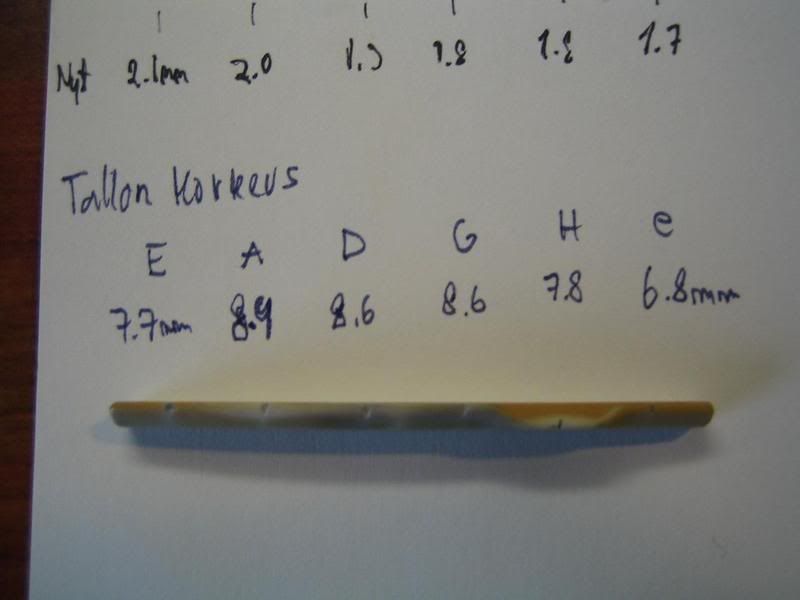 Nyt 2.1mm 2.0 1.9 1.8 1.8 1.7
Tallon Korkeus
E A D G H e
7.7mm 8.4 8.6 8.6 7.8 6.8mm